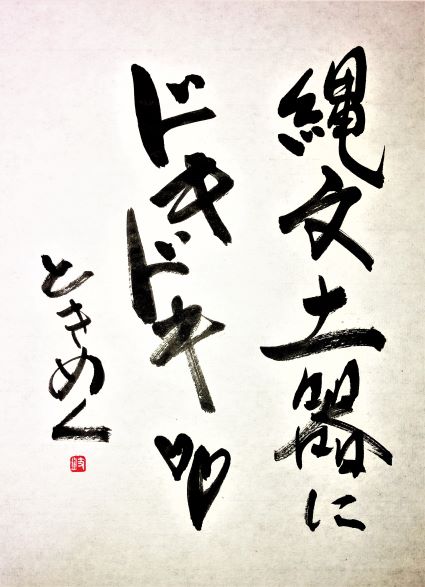 縄文土器に
ドキドキ♡♡
ときめく